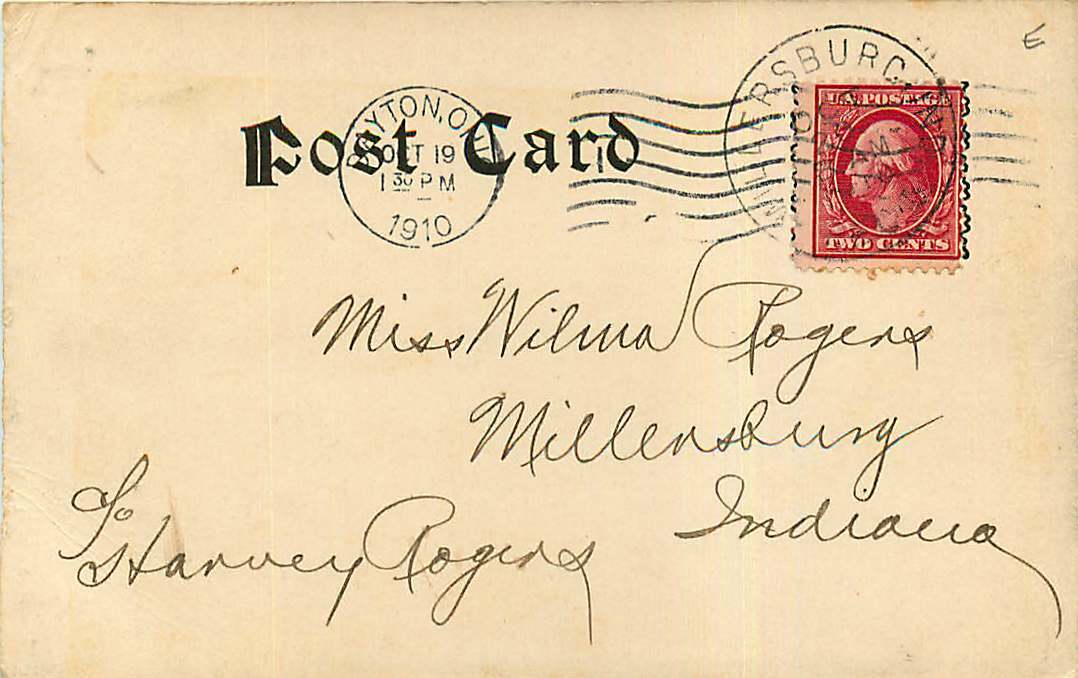 Post Card
DAYTON, O
OCT 19
1 30 PM
1910
MILLERSBURG
U.S. POSTAGE
TWO CENTS
Miss Wilma Rogers
Millersburg
Indiana
c/o
Harvey Rogers
E